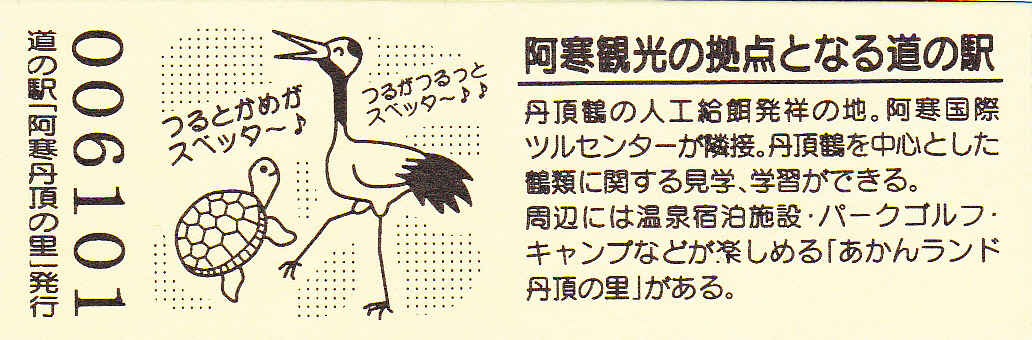 道の駅「阿寒丹頂の里」発行
006101
つるとかめが
スベッタ～♪
つるがつるっと
スベッタ～♪♪
阿寒観光の拠点となる道の駅
丹頂鶴の人工給餌発祥の地。阿寒国際
ツルセンターが隣接。丹頂鶴を中心とした
鶴類に関する見学、学習ができる。
周辺には温泉宿泊施設・パークゴルフ・
キャンプなどが楽しめる「あかんランド
丹頂の里」がある。